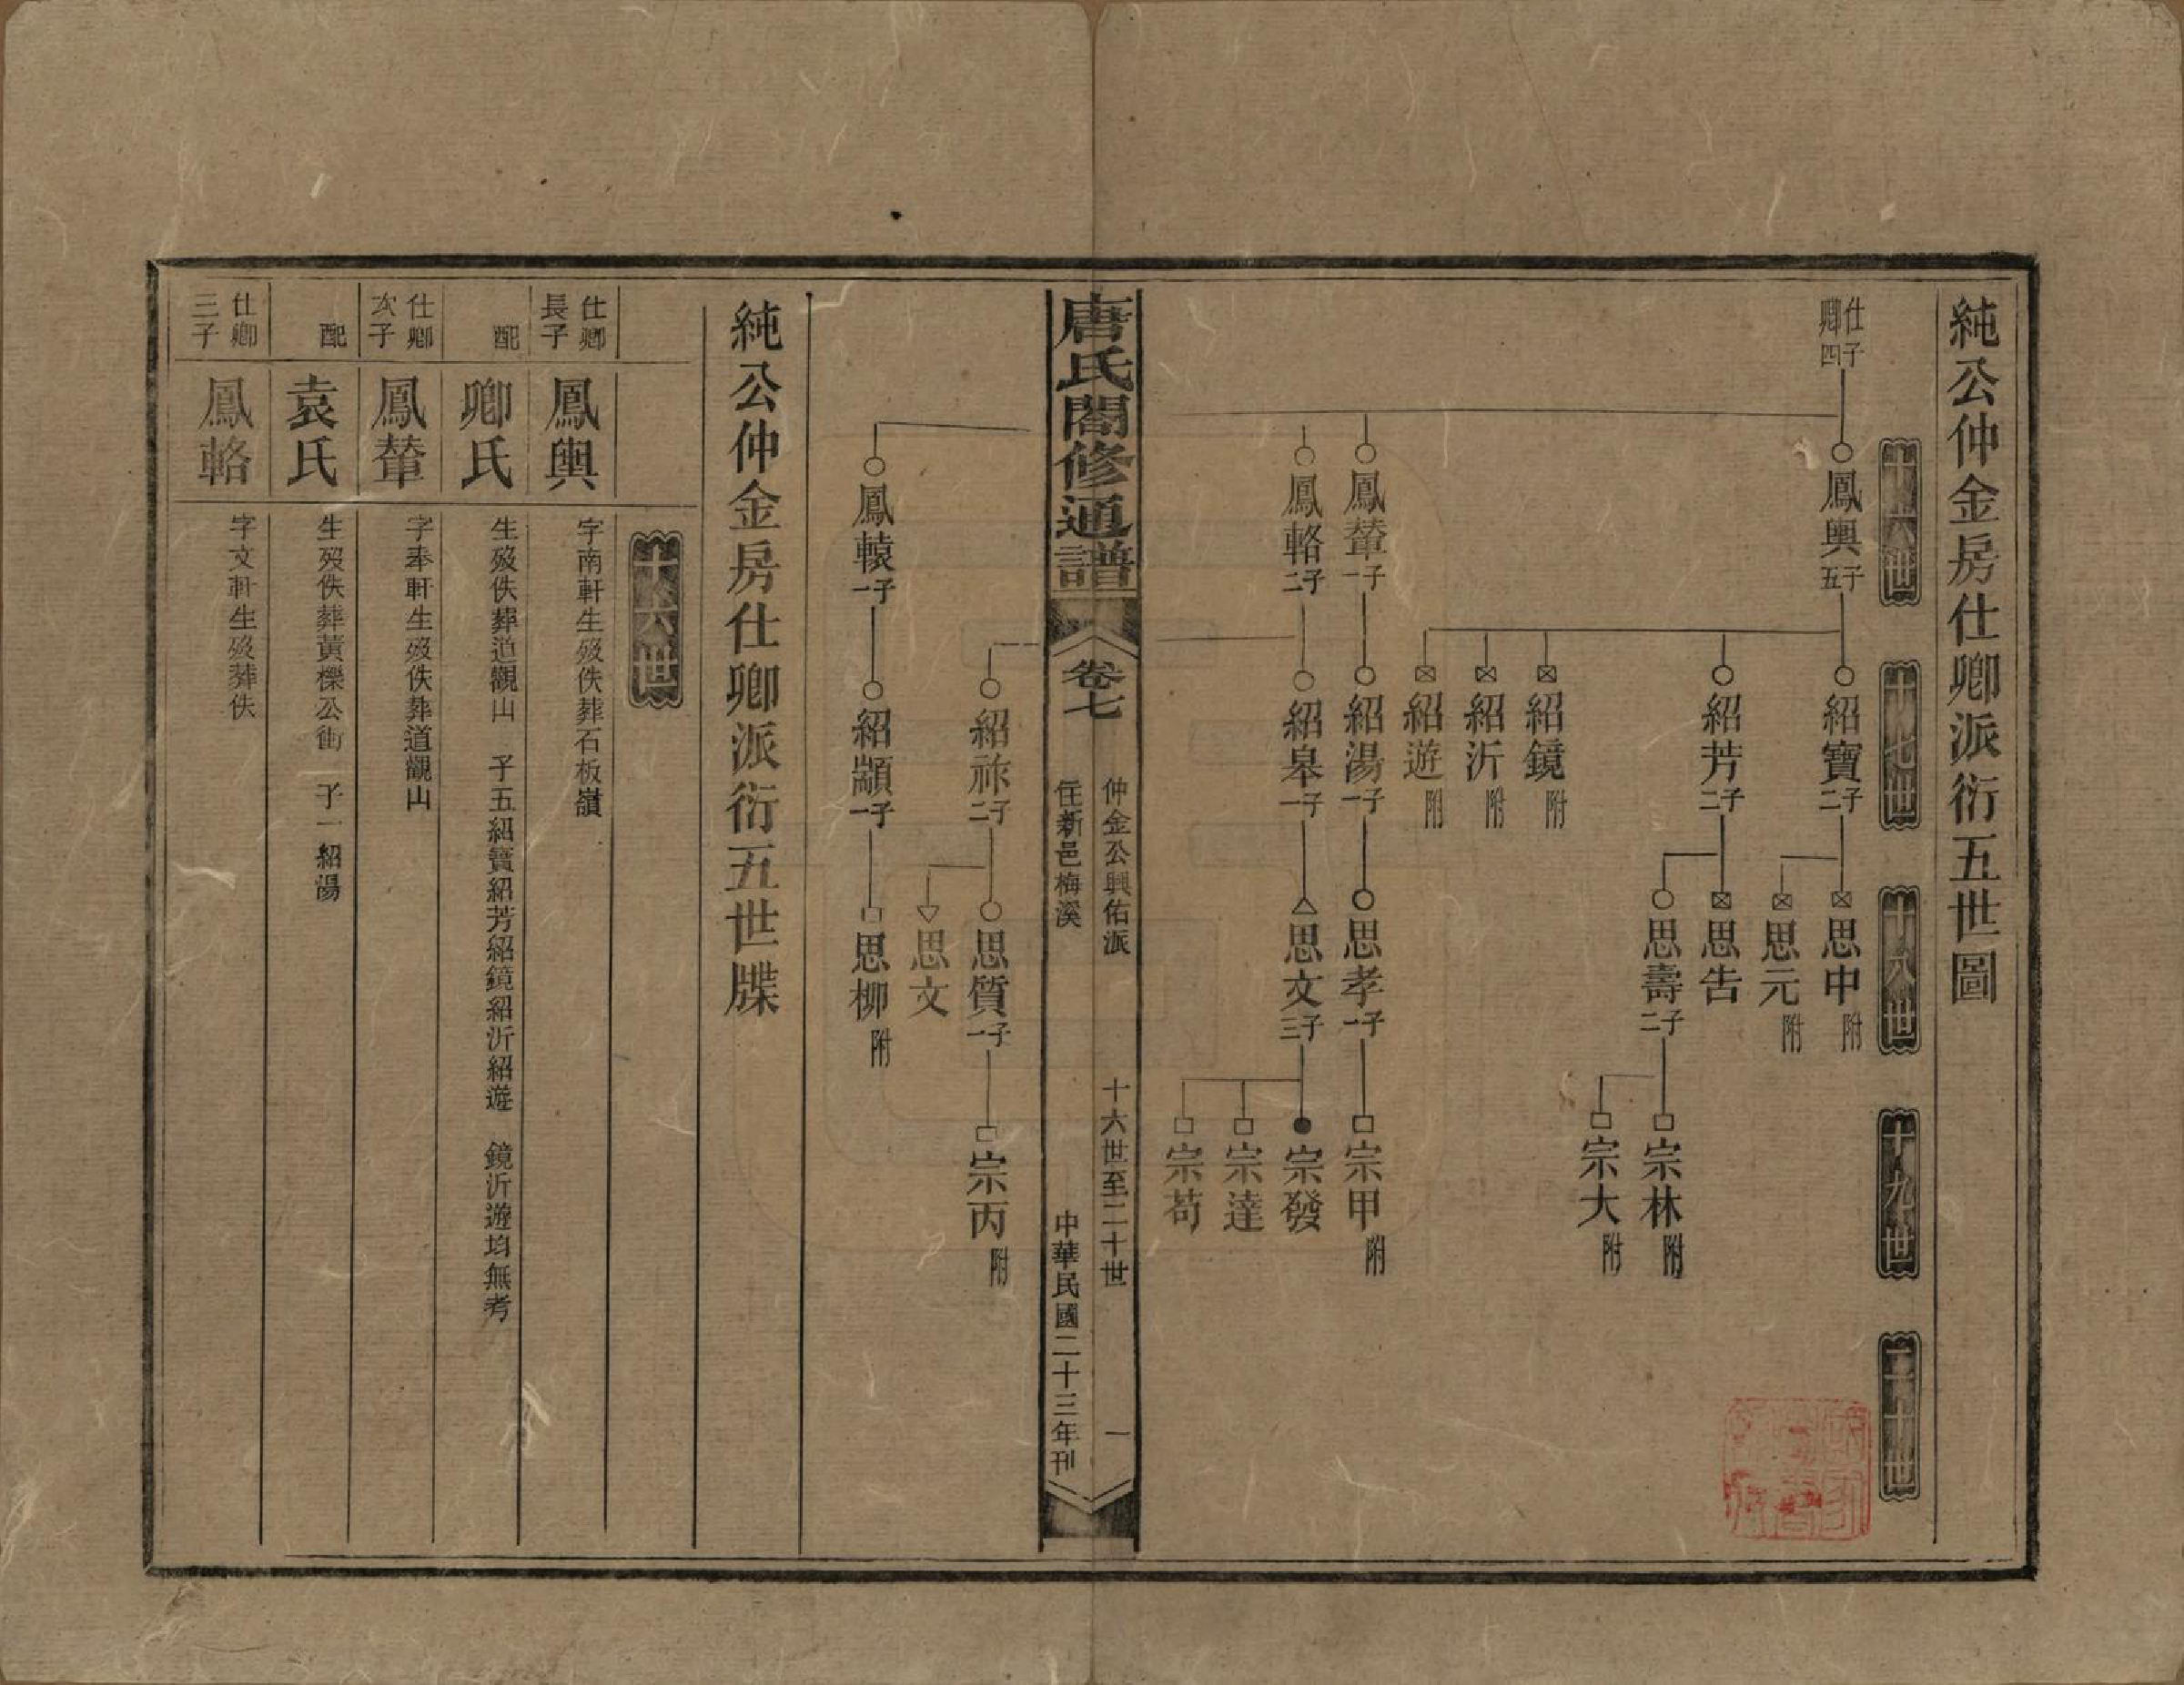 純公仲金房仕卿派衍五世圖
十六世
十七世
十八世
十九世
二十世
仕卿四子
鳳輿五子
紹寶二子
思中附
思元附
紹芳二子
思告
思壽二子
宗林附
宗大附
紹鏡附
紹沂附
紹遊附
鳳輦一子
紹湯一子
思孝一子
宗甲附
鳳輅二子
紹皋一子
思文三子
宗發
宗達
宗苟
唐氏閤修通譜
卷七
仲金公興佑派
住新邑梅溪
十六世至二十世
一
中華民國二十三年刊
紹祢二子
思質一子
宗丙附
思文
鳳轅一子
紹顓一子
思柳附
純公仲金房仕卿派衍五世牒
十六世
仕卿長子
鳳輿
字南軒生歿佚葬石板嶺
配
卿氏
生歿佚葬道觀山 子五紹寶紹芳紹鏡紹沂紹遊 鏡沂遊均無考
仕卿次子
鳳輦
字奉軒生歿佚葬道觀山
配
袁氏
生歿佚葬黃櫟公衝 子一紹湯
仕卿三子
鳳輅
字文軒生歿葬佚